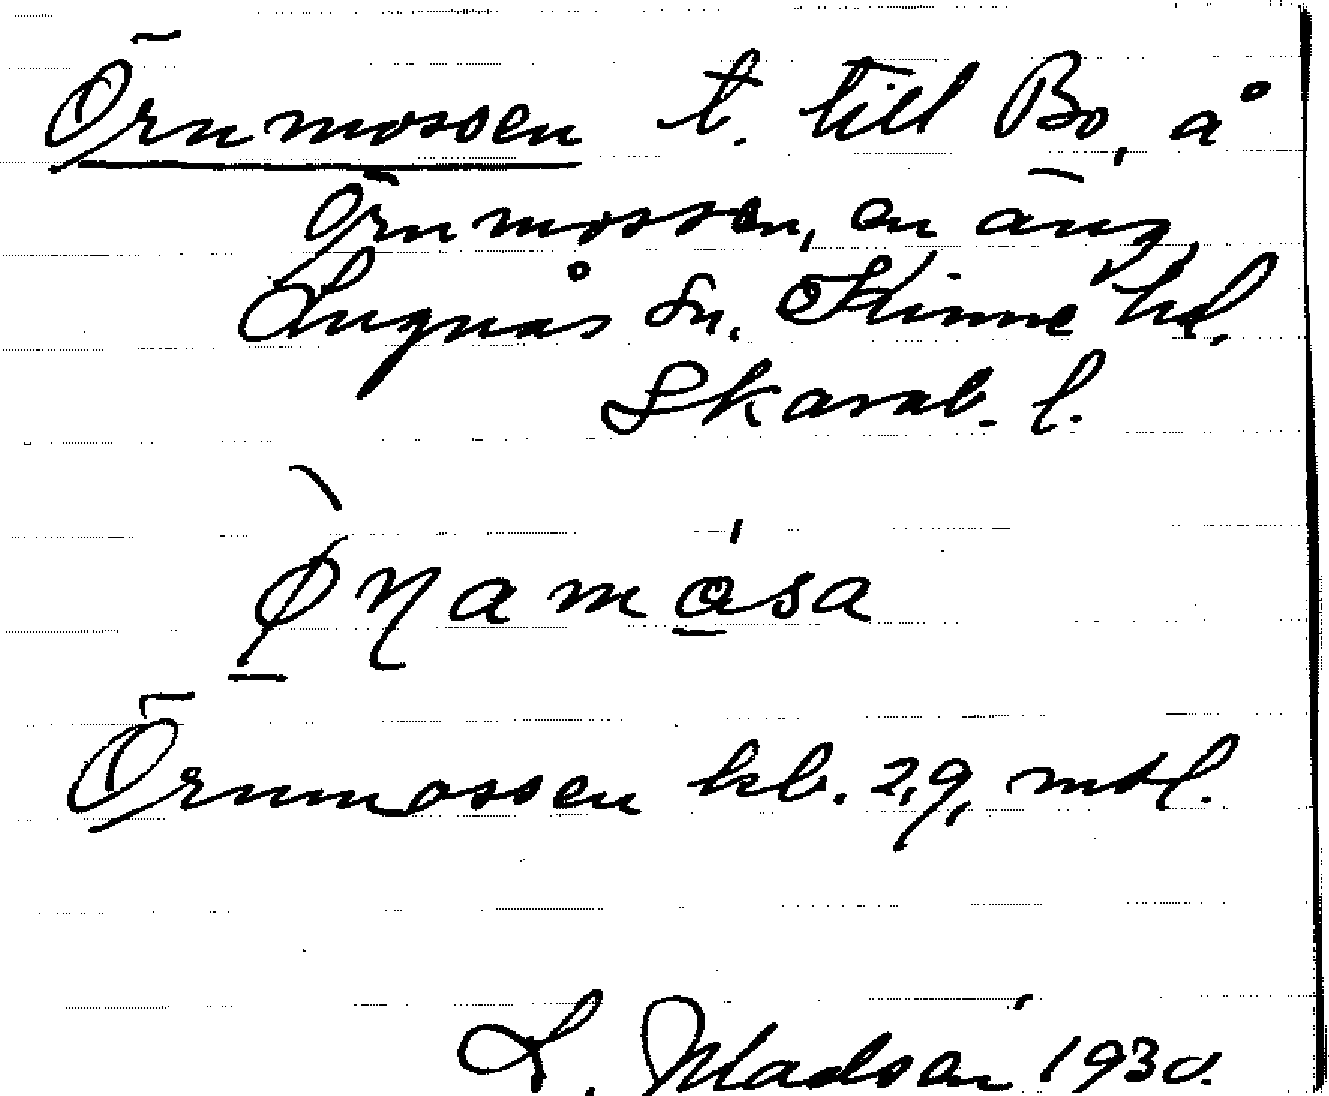 Örnmossen t. till Bo, å
Örnmossen, en äng,
Lugnås sn. Kinne hd.
Skarab. l.
Örnmossen kb. 29, mtl.
L. Madsén 1930.